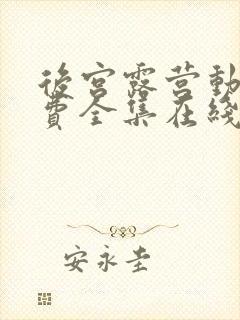 後宫露营動
費全集在綫
安永圭